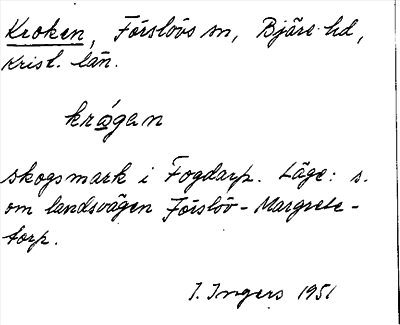 Kroken, Förslövs sn, Bjäre hd,
Krist. län.
krågan
skogsmark i Fogdarp. Läge: s.
om landsvägen Förslöv - Margrete-
torp.
I. Ingers 1951